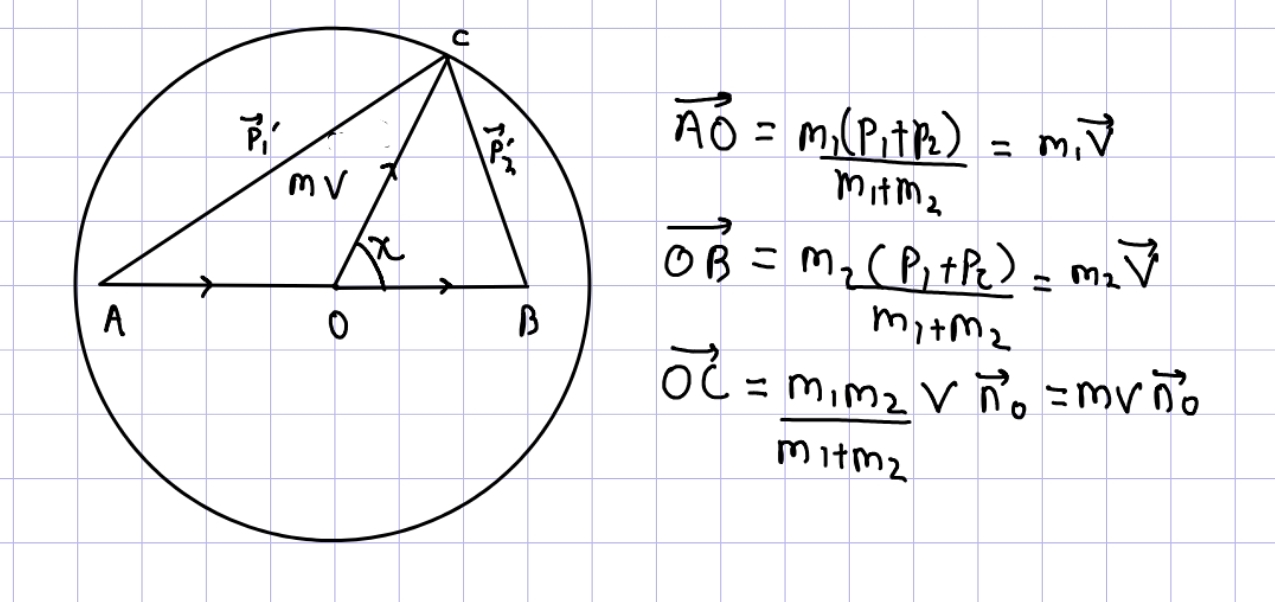 C
p⃗₁′
p⃗₂′
mv
χ
A
O
B
AO⃗ = m₁(p₁+p₂)/(m₁+m₂) = m₁V⃗
OB⃗ = m₂(p₁+p₂)/(m₁+m₂) = m₂V⃗
OC⃗ = m₁m₂/(m₁+m₂) v n⃗₀ = mv n⃗₀